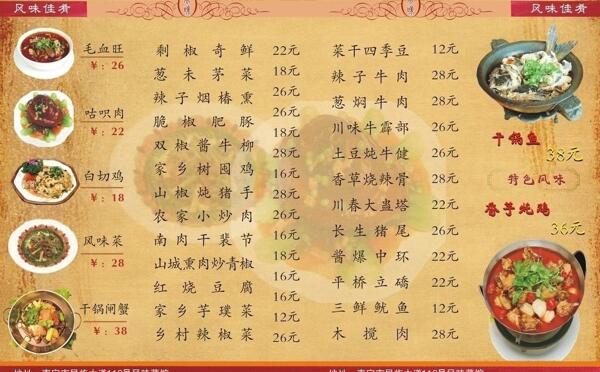 风味佳肴
风味佳肴
毛血旺
￥：26
咕呗肉
￥：22
白切鸡
￥：18
风味菜
￥：28
干锅闸蟹
￥：38
剩椒奇鲜 22元
葱未茅菜 18元
辣子烟椿熏 26元
脆椒肥豚 26元
双椒酱牛柳 18元
家乡树囤鸡 28元
山椒炖猪手 16元
农家小炒肉 28元
南肉干裴节 26元
山城熏肉炒青椒 18元
红烧豆腐 16元
家乡芋璞菜 12元
乡村辣椒菜 26元
菜干四季豆 12元
辣子牛肉 28元
葱焖牛肉 28元
川味牛霹部 26元
土豆炖牛健 26元
香草烧辣骨 28元
川春大蛊塔 22元
长生猪尾 26元
酱爆中环 22元
平桥立礄 22元
三鲜鱿鱼 12元
木搅肉 28元
干锅鱼
38元
特色风味
春芋炖鸡
36元